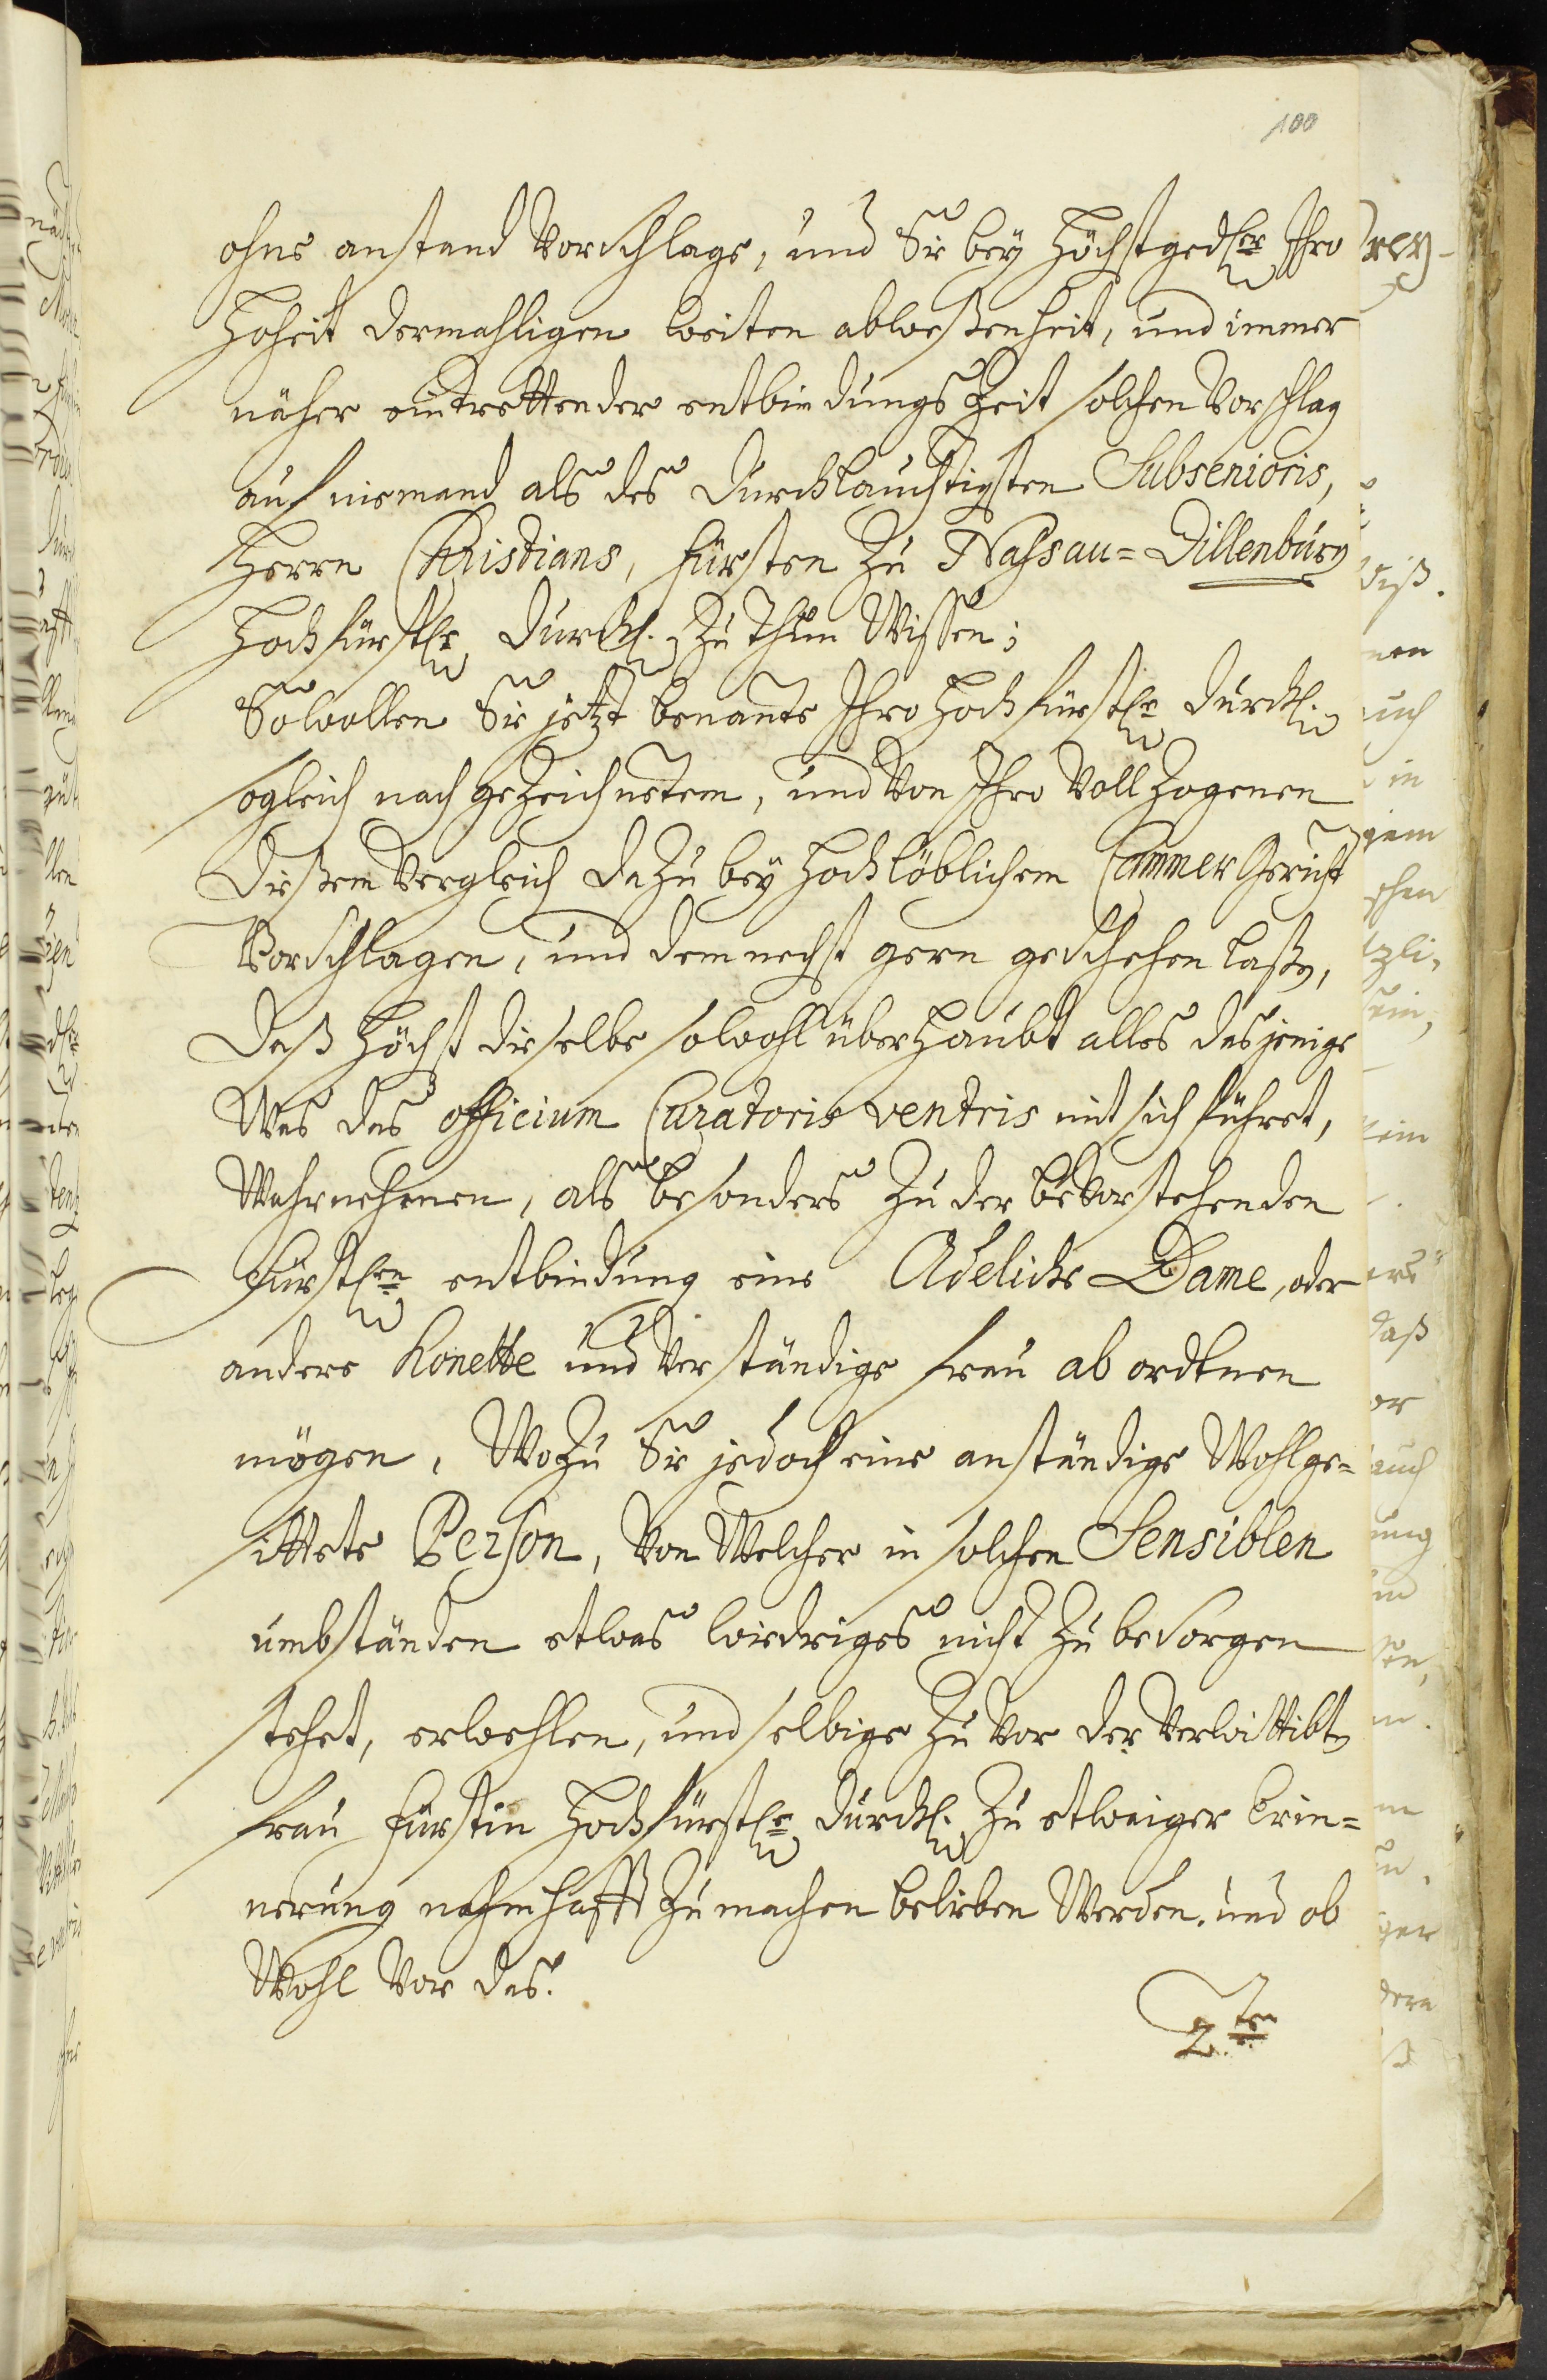 100
ohne anstand Vorschlage, und Sie bey Höchstgedler Ihro
Hoheit dermahligen weiten abweßenheit, und immer
näher eintrettender entbindungs Zeit solchen Vorschlag
auf niemand als des Durchlauchtigsten Subsenioris,
Herrn Christians, Fürsten Zu Nassau=Dillenburg
Hochfürstle Durchl. Zu thun Wissen;
So wollen Sie jetzt benante Ihro Hochfürstle Durchl.
sogleich nach geZeichnetem, und Von Ihro VollZogenen
Dießem Vergleich daZu bey Hochlöblichem Cammer Gericht
Vorschlagen, und demnechst gern geschehen laßen,
Daß Höchst dieselbe sowohl überhaubt alles dasjenige
Was das officium Curatoris ventris mit sich führet,
Wahrnehmen, als besonders Zu der beVorstehenden
Fürstlen entbindung eine Adeliche Dame, oder
andere honette und Verständige frau ab ordtnen
mögen, WoZu Sie jedoch eine anständige Wohlge=
sittete Person, Von Welcher in solchen Sensiblen
umbständen etwas wiedriges nicht Zu besorgen
stehet, erwehlen, und selbige Zu Vor der Verwittibten
Frau Fürstin Hochfürstle Durchl. Zu etwaiger Erin=
nerung nahmhafft Zu machen belieben Werden. und ob
Wohl Vor das.
2.ten